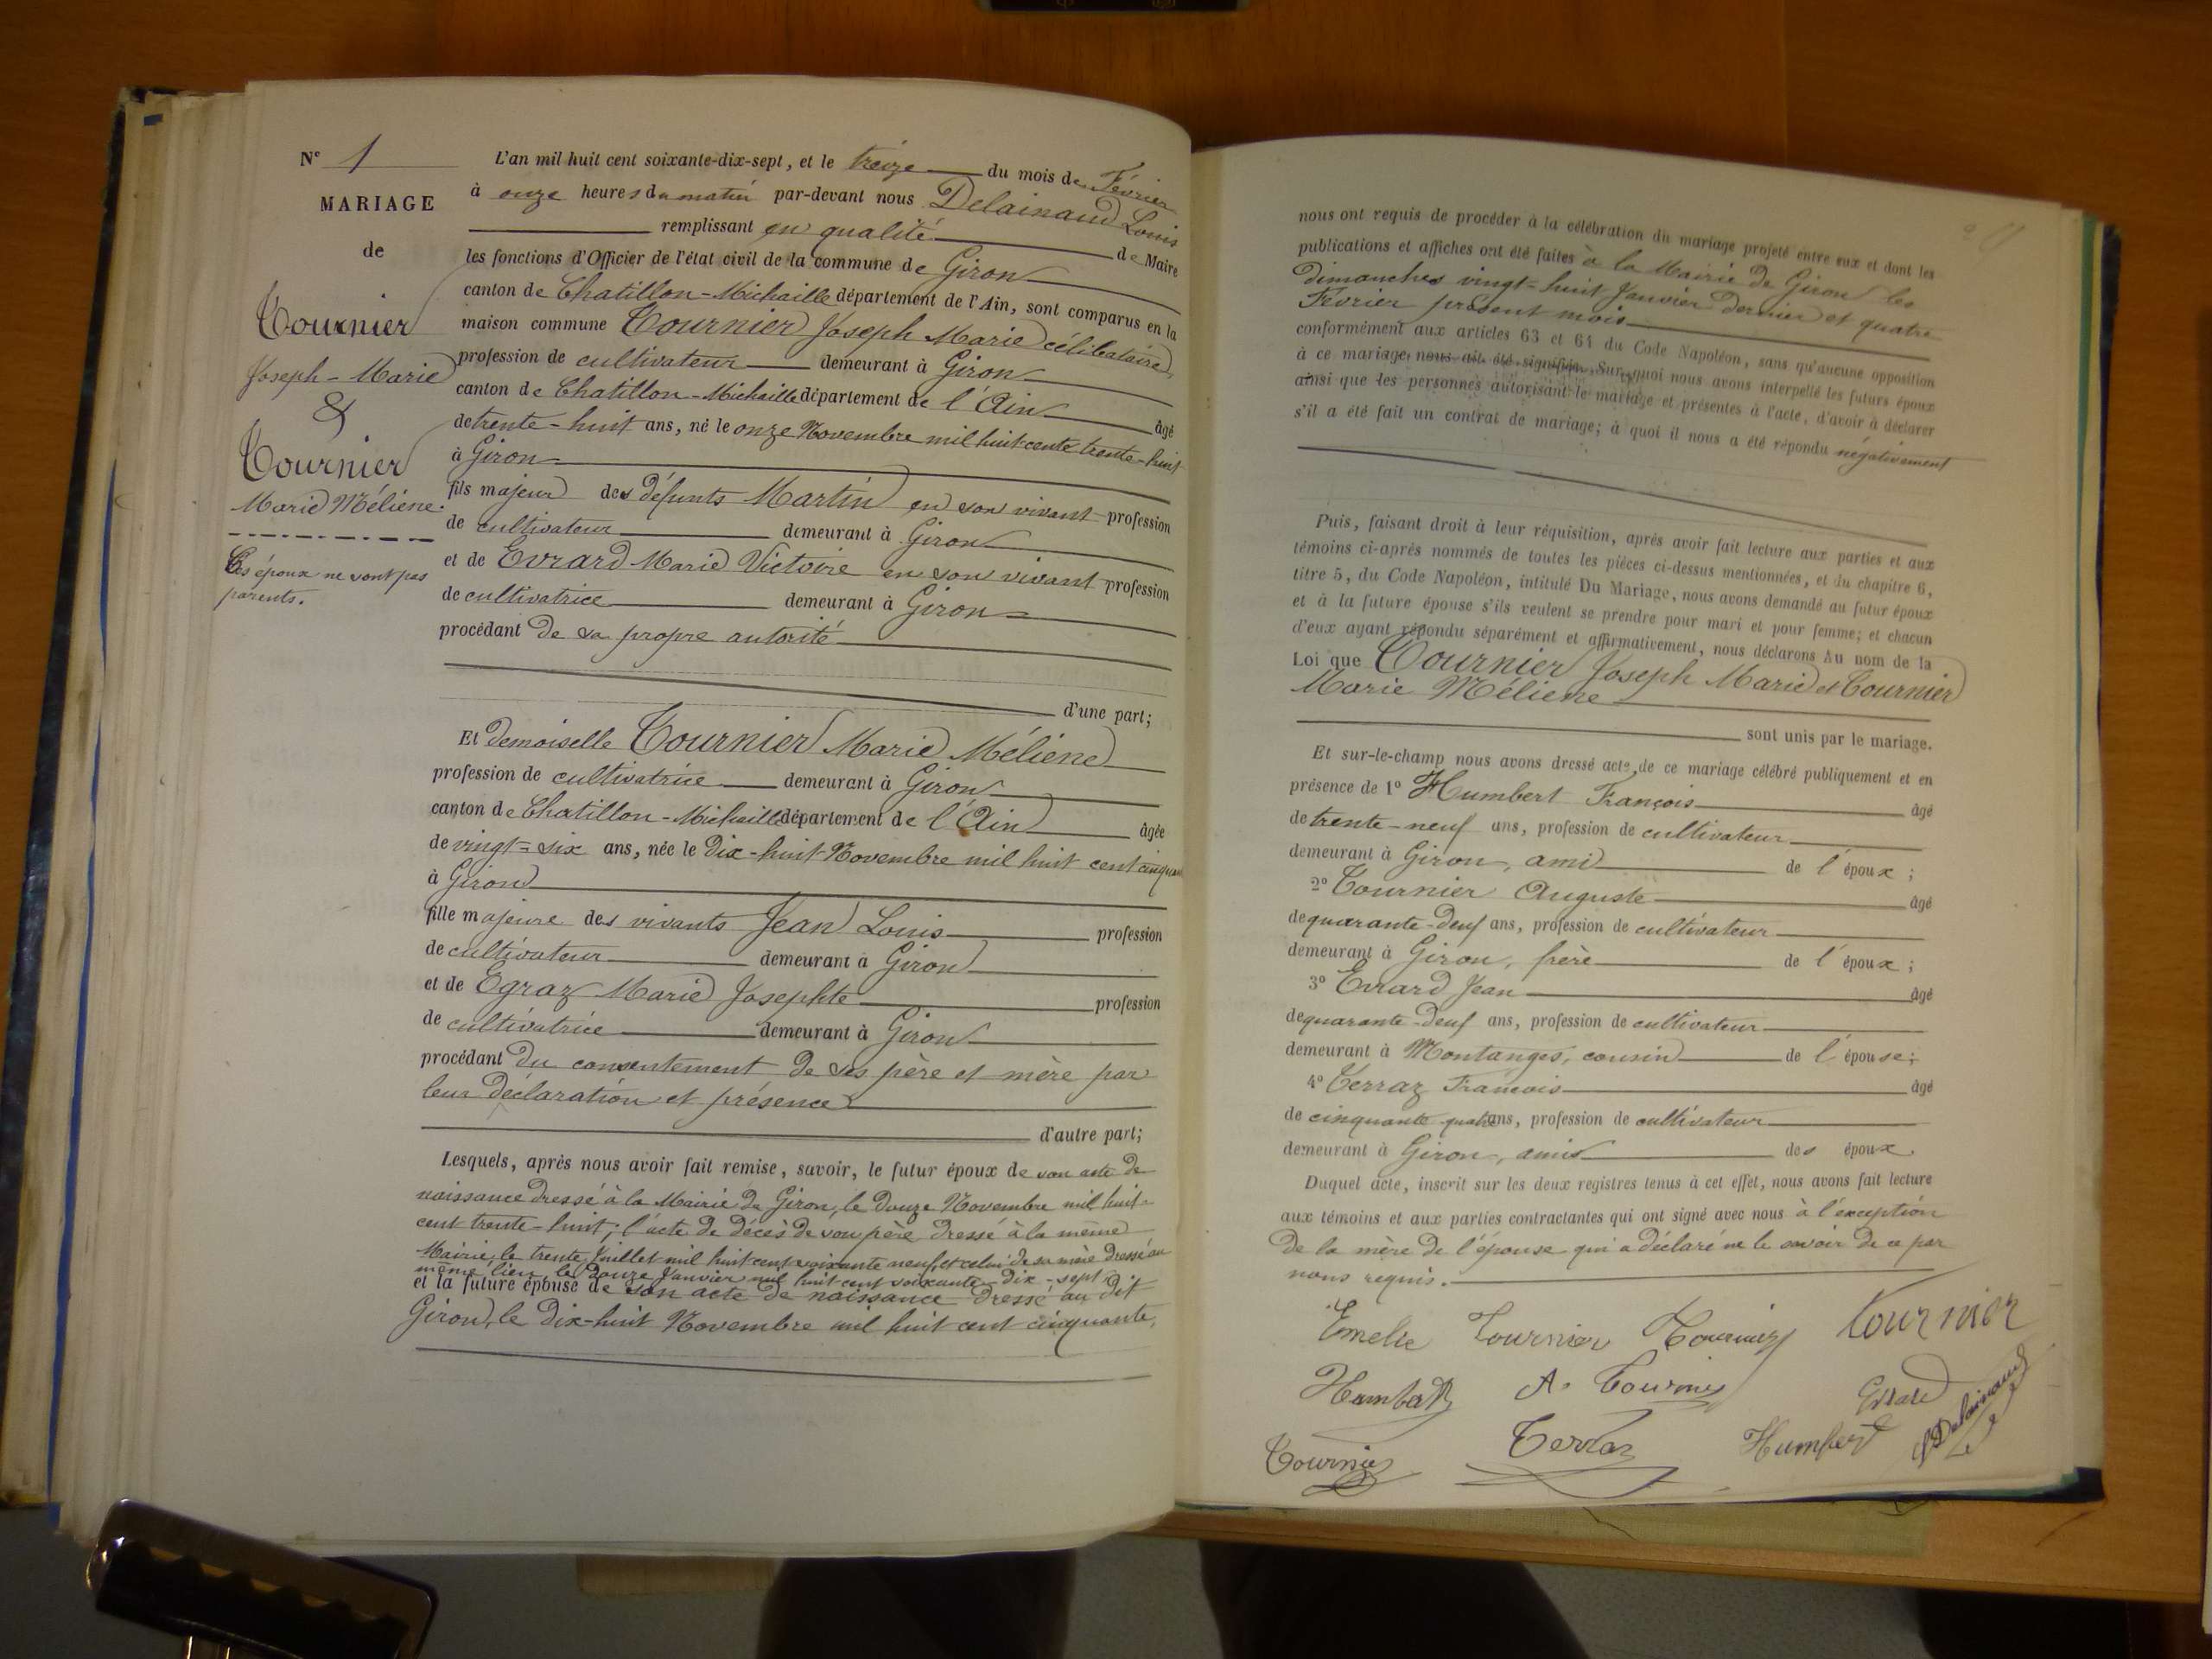 N° 1
MARIAGE
de
Tournier
Joseph-Marie
&
Tournier
Marie Méliène.
Ces époux ne sont pas
parents.
L'an mil huit cent soixante-dix-sept, et le treize du mois de Février
à onze heures du matin par-devant nous Delainaud Louis
remplissant en qualité de Maire
les fonctions d'Officier de l'état civil de la commune de Giron
canton de Chatillon-Michaille département de l'Ain, sont comparus en la
maison commune Tournier Joseph Marie célibataire,
profession de cultivateur demeurant à Giron
canton de Chatillon-Michaille département de l'Ain âgé
de trente-huit ans, né le onze Novembre mil huit cent trente-huit
à Giron
fils majeur des défunts Martin en son vivant profession
de cultivateur demeurant à Giron
et de Evrard Marie Victoire en son vivant profession
de cultivatrice demeurant à Giron
procédant de sa propre autorité
d'une part;
Et demoiselle Tournier Marie Méliène
profession de cultivatrice demeurant à Giron
canton de Chatillon-Michaille département de l'Ain âgée
de vingt-six ans, née le dix-huit Novembre mil huit cent cinquante
à Giron
fille majeure des vivants Jean Louis profession
de cultivateur demeurant à Giron
et de Egraz Marie Josephte profession
de cultivatrice demeurant à Giron
procédant du consentement de ses père et mère par
leur déclaration et présence
d'autre part;
Lesquels, après nous avoir fait remise, savoir, le futur époux de son acte de
naissance dressé à la Mairie de Giron, le douze Novembre mil huit-
cent trente-huit; l'acte de décès de son père dressé à la même
Mairie, le trente Juillet mil huit cent soixante neuf, et celui de sa mère dressé au
même lieu, le douze Janvier mil huit cent soixante-dix-sept;
et la future épouse de son acte de naissance dressé au dit
Giron, le dix-huit Novembre mil huit cent cinquante,
nous ont requis de procéder à la célébration du mariage projeté entre eux et dont les
publications et affiches ont été faites à la Mairie de Giron les
dimanches vingt-huit Janvier dernier et quatre
Février présent mois
conformément aux articles 63 et 64 du Code Napoléon, sans qu'aucune opposition
à ce mariage nous ait été signifiée. Sur quoi nous avons interpellé les futurs époux
ainsi que les personnes autorisant le mariage et présentes à l'acte, d'avoir à déclarer
s'il a été fait un contrat de mariage; à quoi il nous a été répondu négativement
Puis, faisant droit à leur réquisition, après avoir fait lecture aux parties et aux
témoins ci-après nommés de toutes les pièces ci-dessus mentionnées, et du chapitre 6,
titre 5, du Code Napoléon, intitulé Du Mariage, nous avons demandé au futur époux
et à la future épouse s'ils veulent se prendre pour mari et pour femme; et chacun
d'eux ayant répondu séparément et affirmativement, nous déclarons Au nom de la
Loi que Tournier Joseph Marie et Tournier
Marie Méliène
sont unis par le mariage.
Et sur-le-champ nous avons dressé acte de ce mariage célébré publiquement et en
présence de 1° Humbert François âgé
de trente-neuf ans, profession de cultivateur
demeurant à Giron, ami de l'époux;
2° Tournier Auguste âgé
de quarante-deuf ans, profession de cultivateur
demeurant à Giron, frère de l'époux;
3° Evrard Jean âgé
de quarante-deuf ans, profession de cultivateur
demeurant à Montanges, cousin de l'épouse;
4° Terraz François âgé
de cinquante quatre ans, profession de cultivateur
demeurant à Giron, amis des époux.
Duquel acte, inscrit sur les deux registres tenus à cet effet, nous avons fait lecture
aux témoins et aux parties contractantes qui ont signé avec nous à l'exception
de la mère de l'épouse qui a déclaré ne le savoir de ce par
nous requis.
Emelie Tournier Tournier Tournier
Humbert A. Tournier Evrard
Tournier Terraz Humbert Delainaud